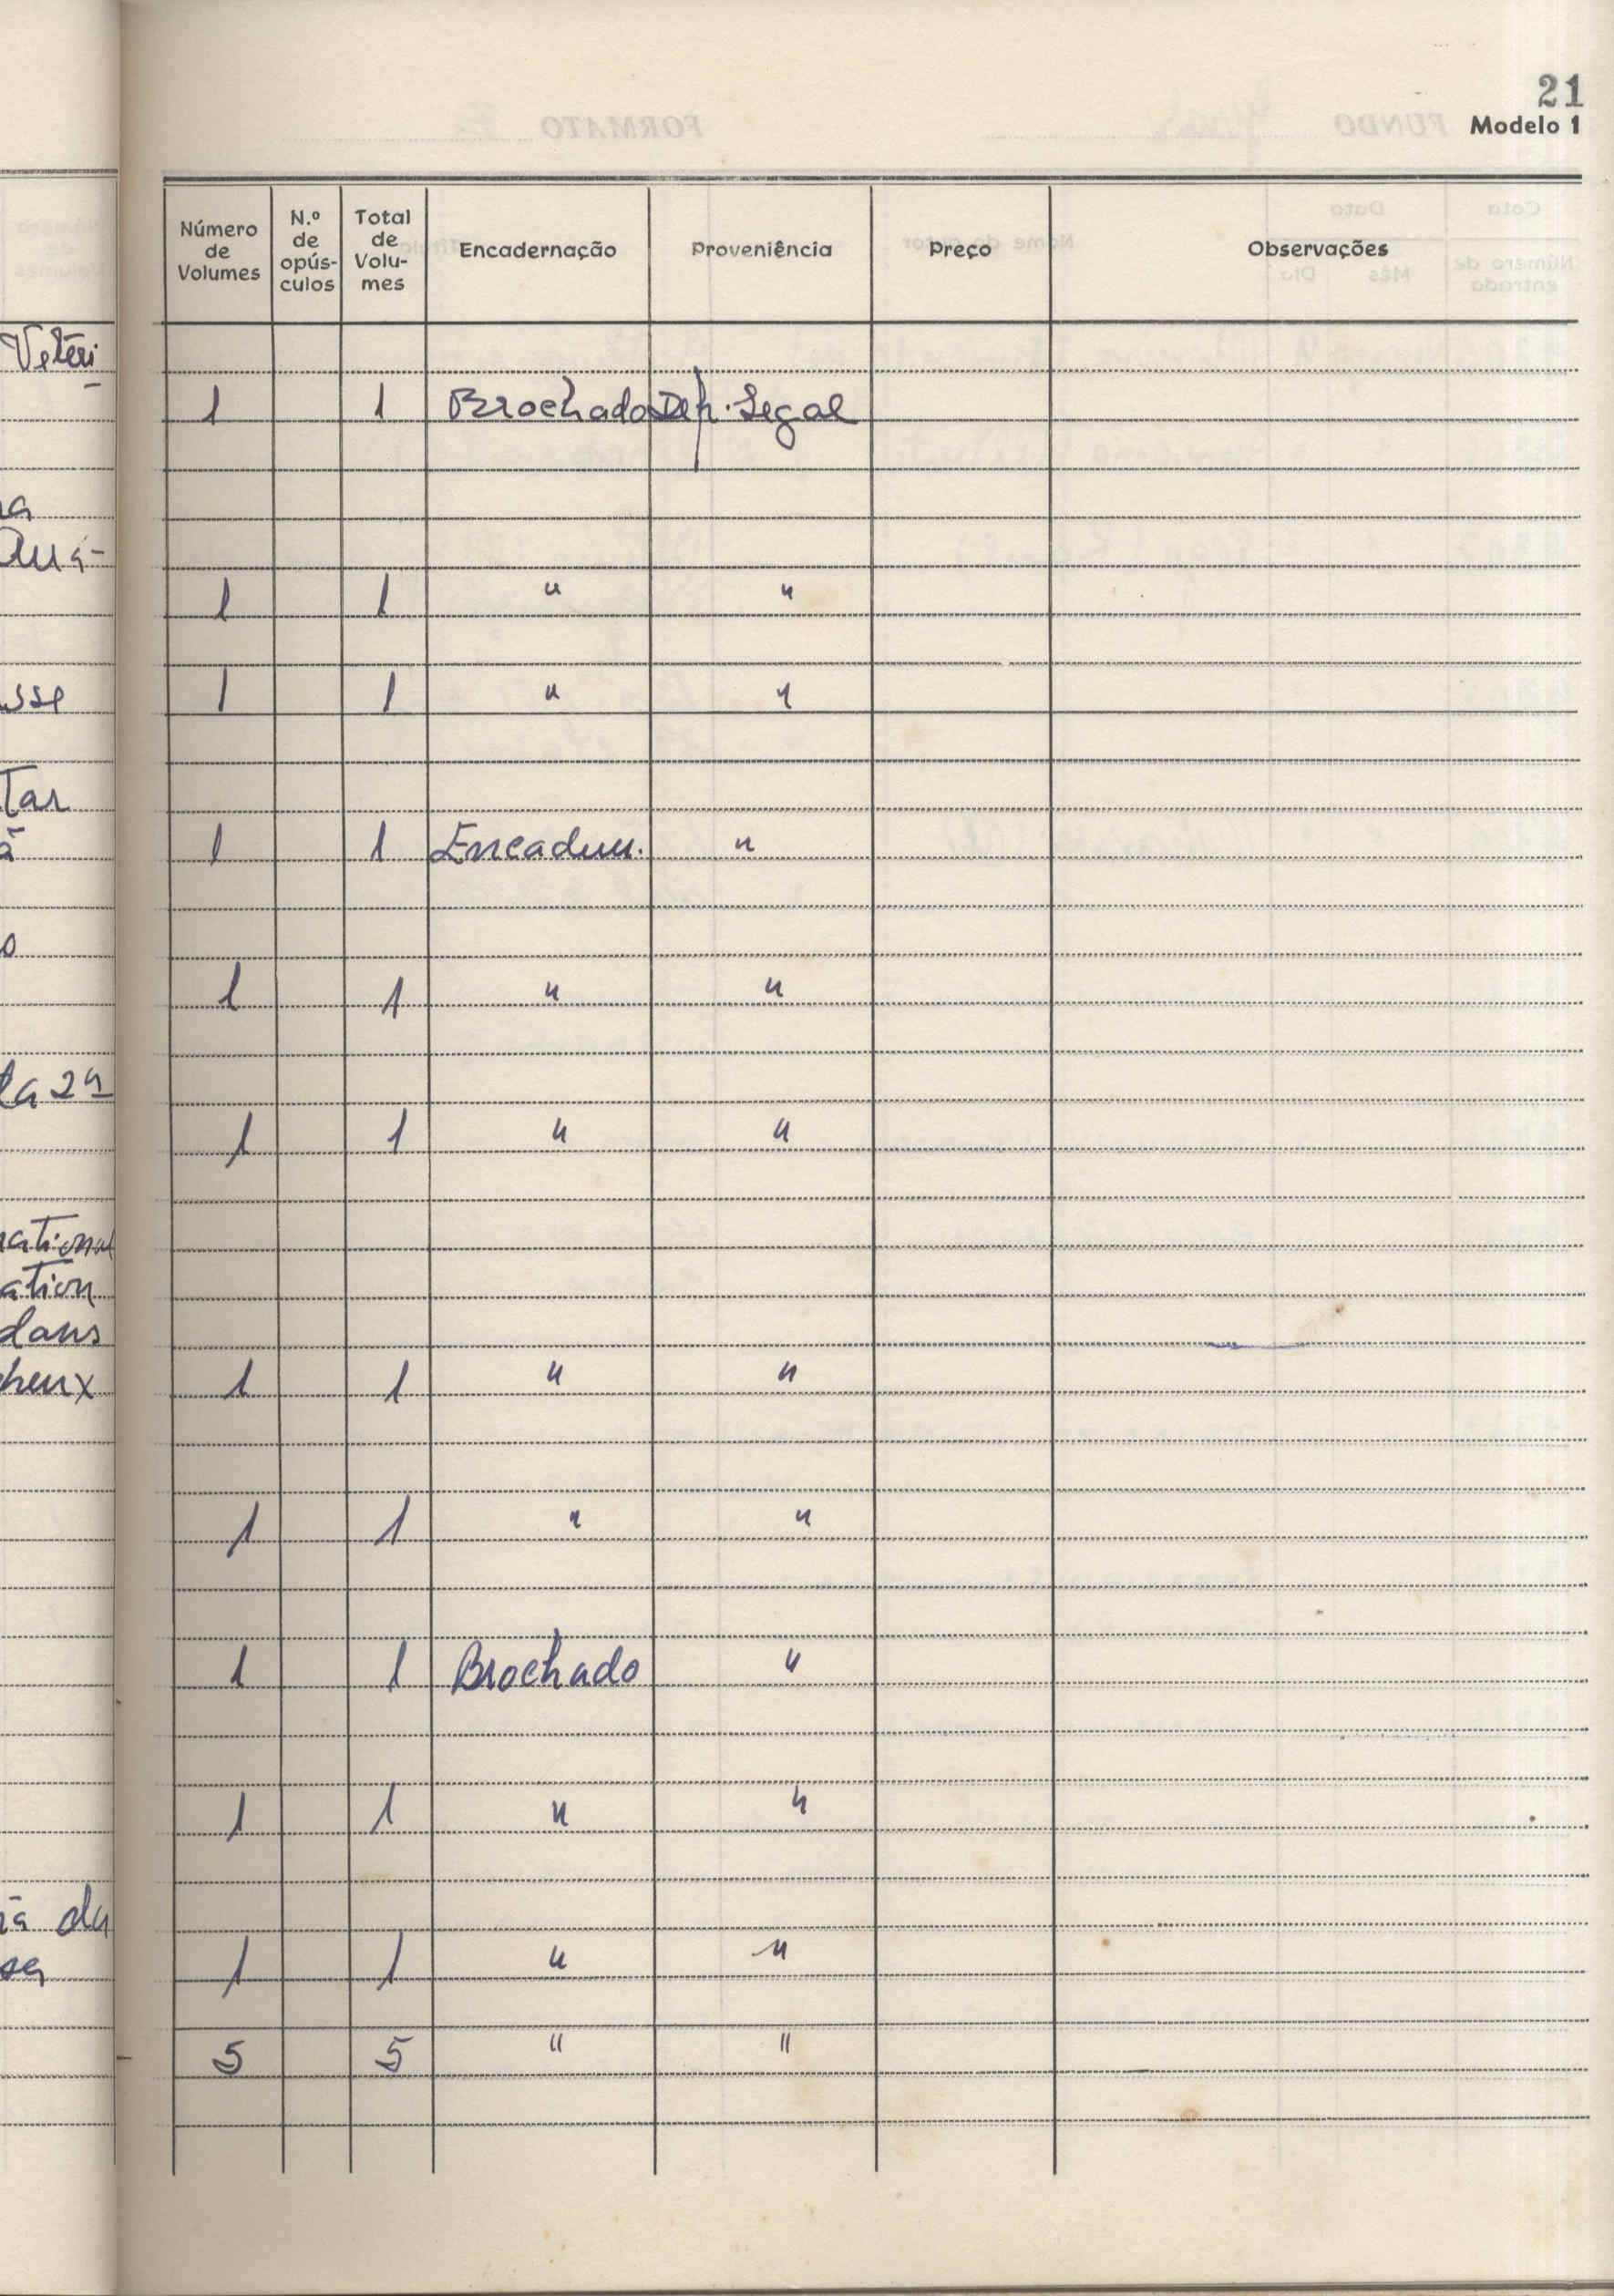 21
Modelo 1
Número de Volumes N.º de opús-culos Total de Volu-mes Encadernação Proveniência Preço Observações
Veteri
-
1 1 Brochado Dep. Legal
Qua-
1 1 " "
sse
1 1 " "
Tar
1 1 Encadern. "
1 1 " "
la 2ª
1 1 " "
national
ation
dans
heux
1 1 " "
1 1 " "
1 1 Brochado "
1 1 " "
da
1 1 " "
5 5 " "